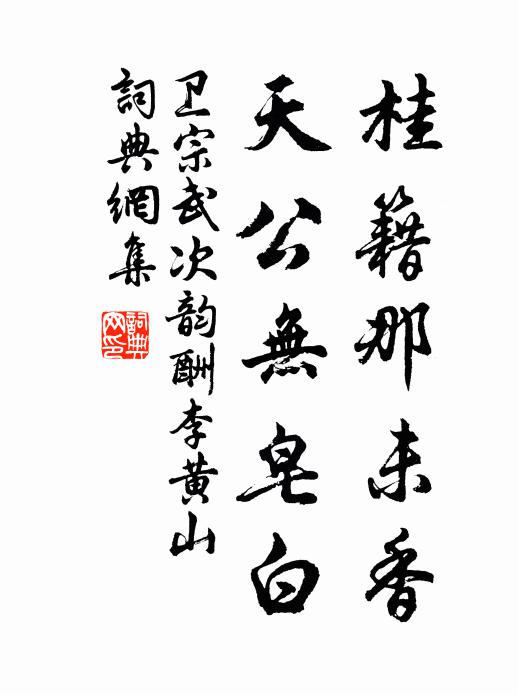 桂籍那未香
天公無皂白
卫宗武次韵酬李黄山
詞典網集
詞典网印